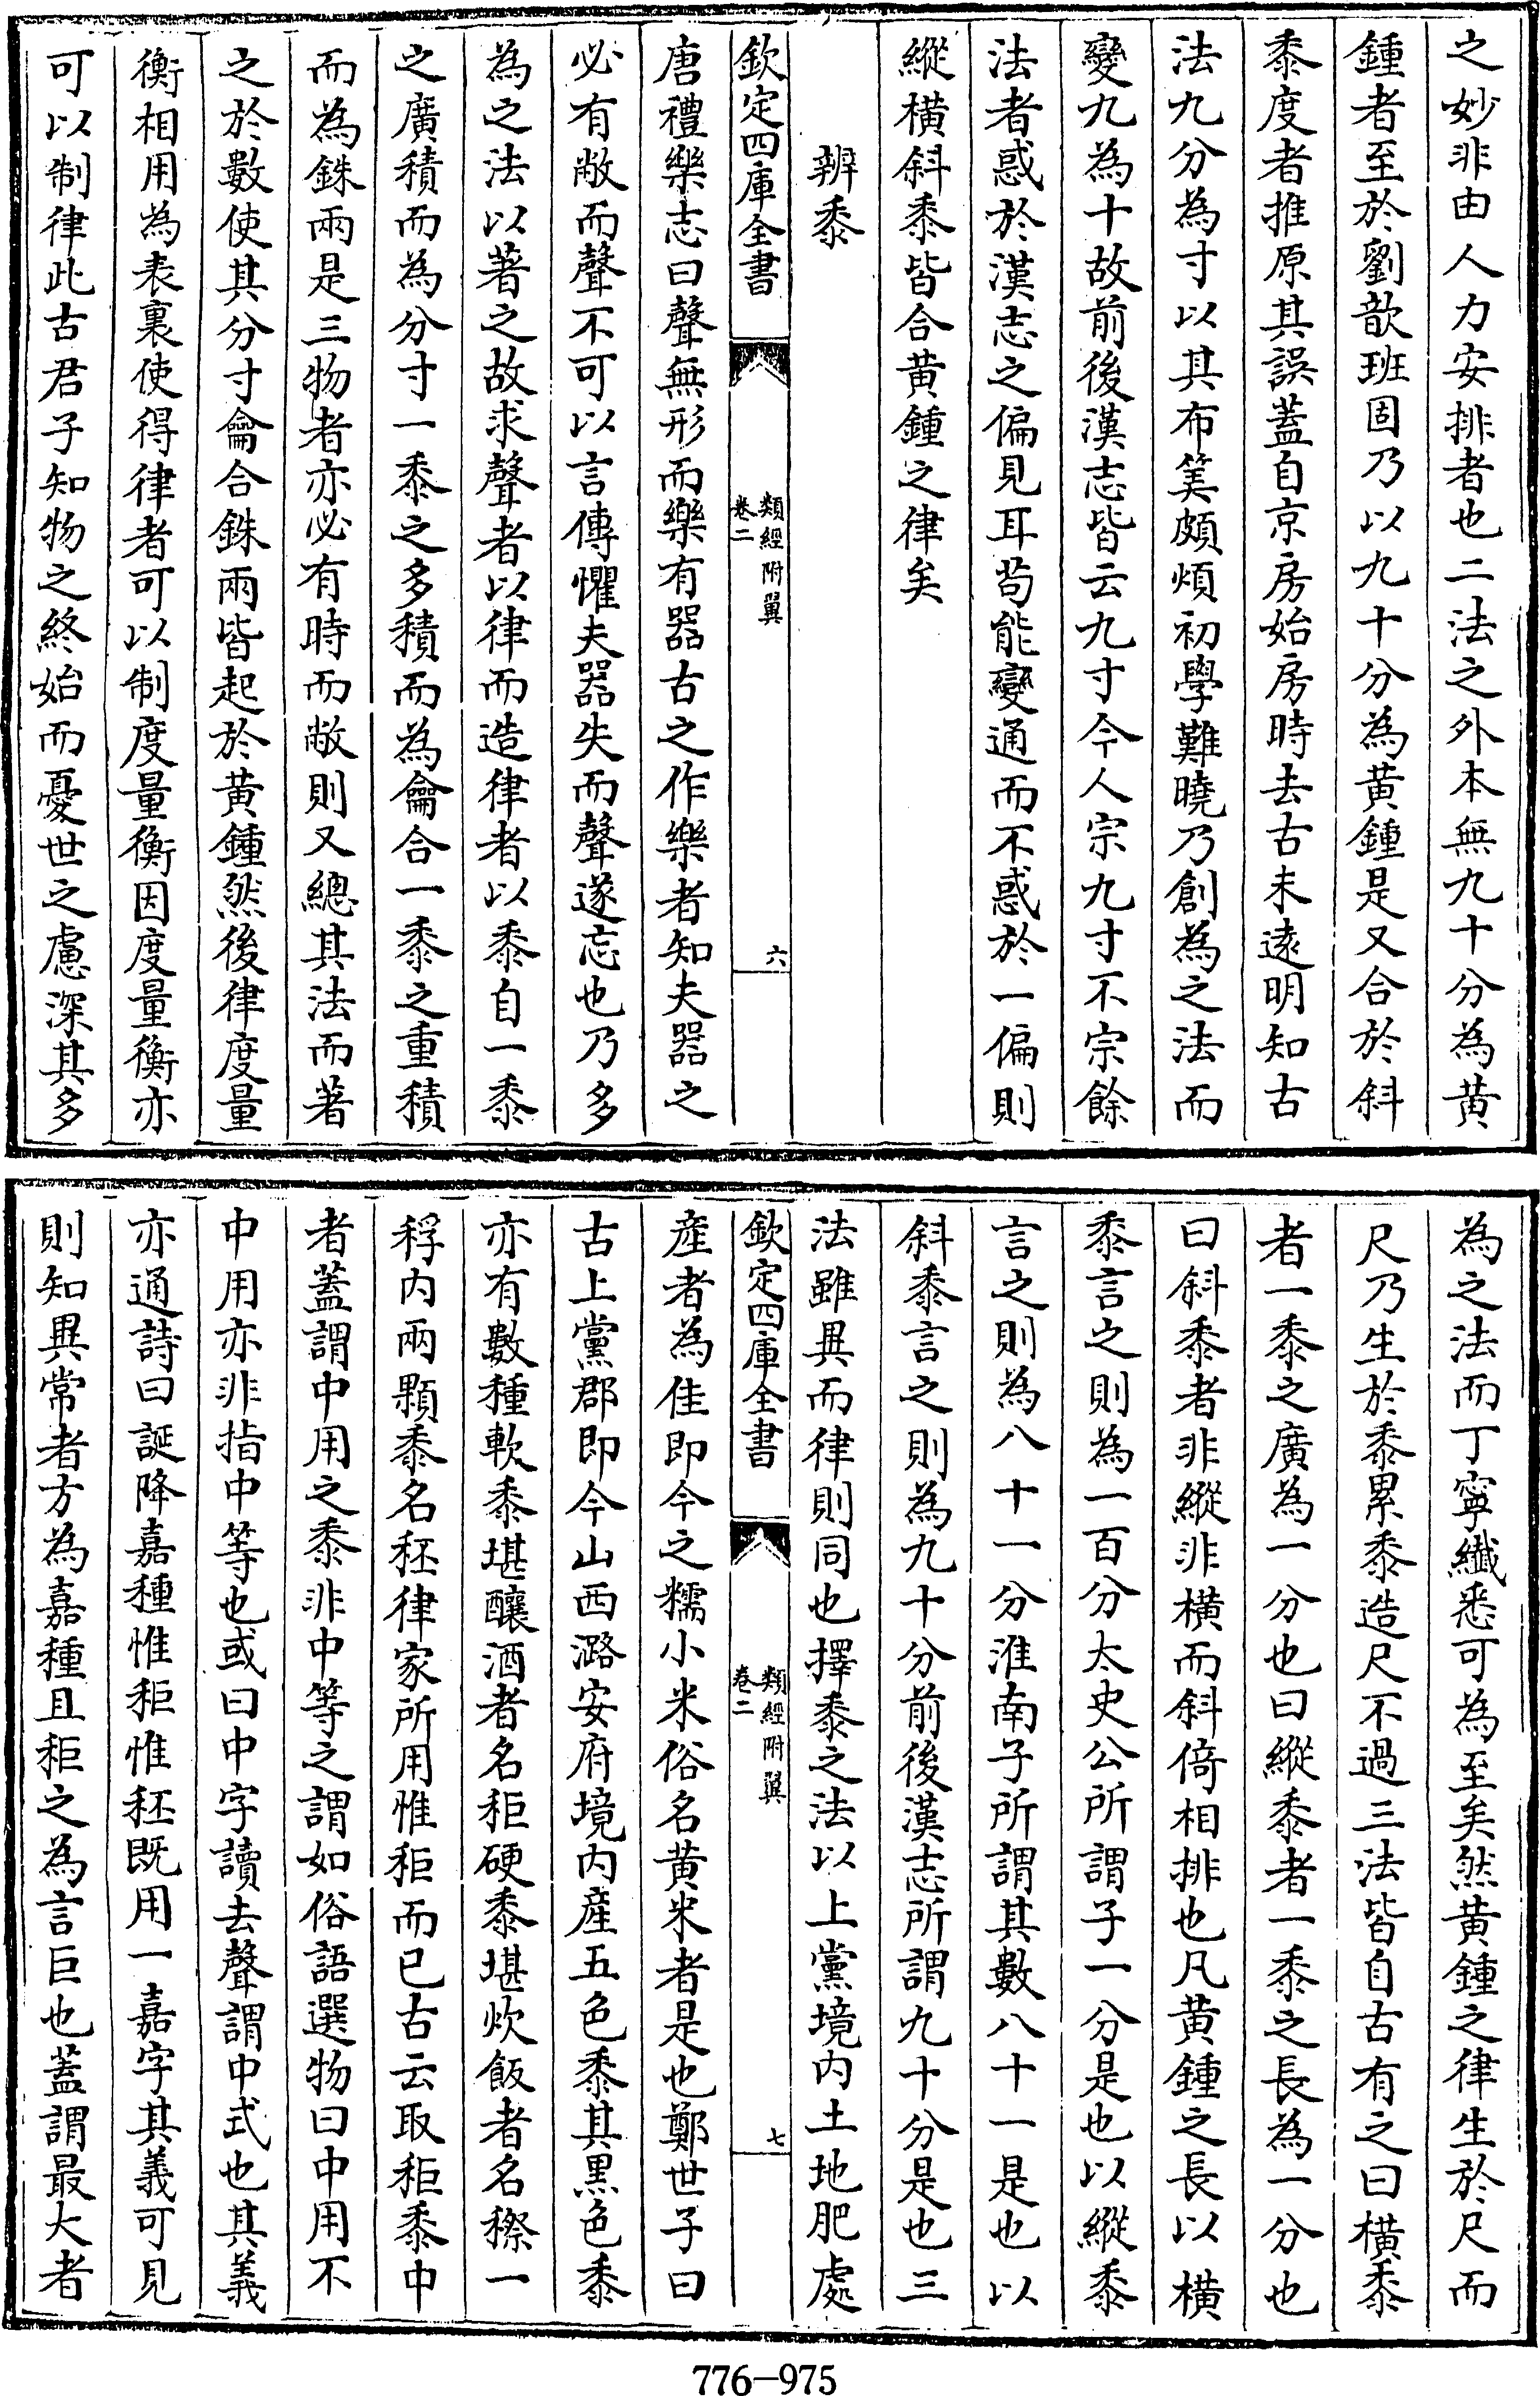 之妙非由人力安排者也二法之外本無九十分為黄
鍾者至於劉歆班固乃以九十分為黄鍾是又合於斜
黍度者推原其誤蓋自京房始房時去古未逺明知古
法九分為寸以其布筭頗煩初學難曉乃創為之法而
變九為十故前後漢志皆云九寸今人宗九寸不宗餘
法者惑於漢志之偏見耳茍能變通而不惑於一偏則
縱横斜黍皆合黄鍾之律矣
辨黍
欽定四庫全書
類經附翼
卷二
六
唐禮樂志曰聲無形而樂有器古之作樂者知夫器之
必有敝而聲不可以言傳懼夫器失而聲遂忘也乃多
為之法以著之故求聲者以律而造律者以黍自一黍
之廣積而為分寸一黍之多積而為龠合一黍之重積
而為銖兩是三物者亦必有時而敝則又總其法而著
之於數使其分寸龠合銖兩皆起於黄鍾然後律度量
衡相用為表裏使得律者可以制度量衡因度量衡亦
可以制律此古君子知物之終始而憂世之慮深其多
為之法而丁寧纖悉可為至矣然黄鍾之律生於尺而
尺乃生於黍累黍造尺不過三法皆自古有之曰横黍
者一黍之廣為一分也曰縱黍者一黍之長為一分也
曰斜黍者非縱非横而斜倚相排也凡黄鍾之長以横
黍言之則為一百分太史公所謂子一分是也以縱黍
言之則為八十一分淮南子所謂其數八十一是也以
斜黍言之則為九十分前後漢志所謂九十分是也三
法雖異而律則同也擇黍之法以上黨境内土地肥處
欽定四庫全書
類經附翼
卷二
七
産者為佳即今之糯小米俗名黄米者是也鄭世子曰
古上黨郡即今山西潞安府境内産五色黍其黒色黍
亦有數種軟黍堪釀酒者名秬硬黍堪炊飯者名穄一
稃内兩顆黍名秠律家所用惟秬而已古云取秬黍中
者蓋謂中用之黍非中等之謂如俗語選物曰中用不
中用亦非指中等也或曰中字讀去聲謂中式也其義
亦通詩曰誕降嘉種惟秬惟秠既用一嘉字其義可見
則知異常者方為嘉種且秬之為言巨也蓋謂最大者
776-975